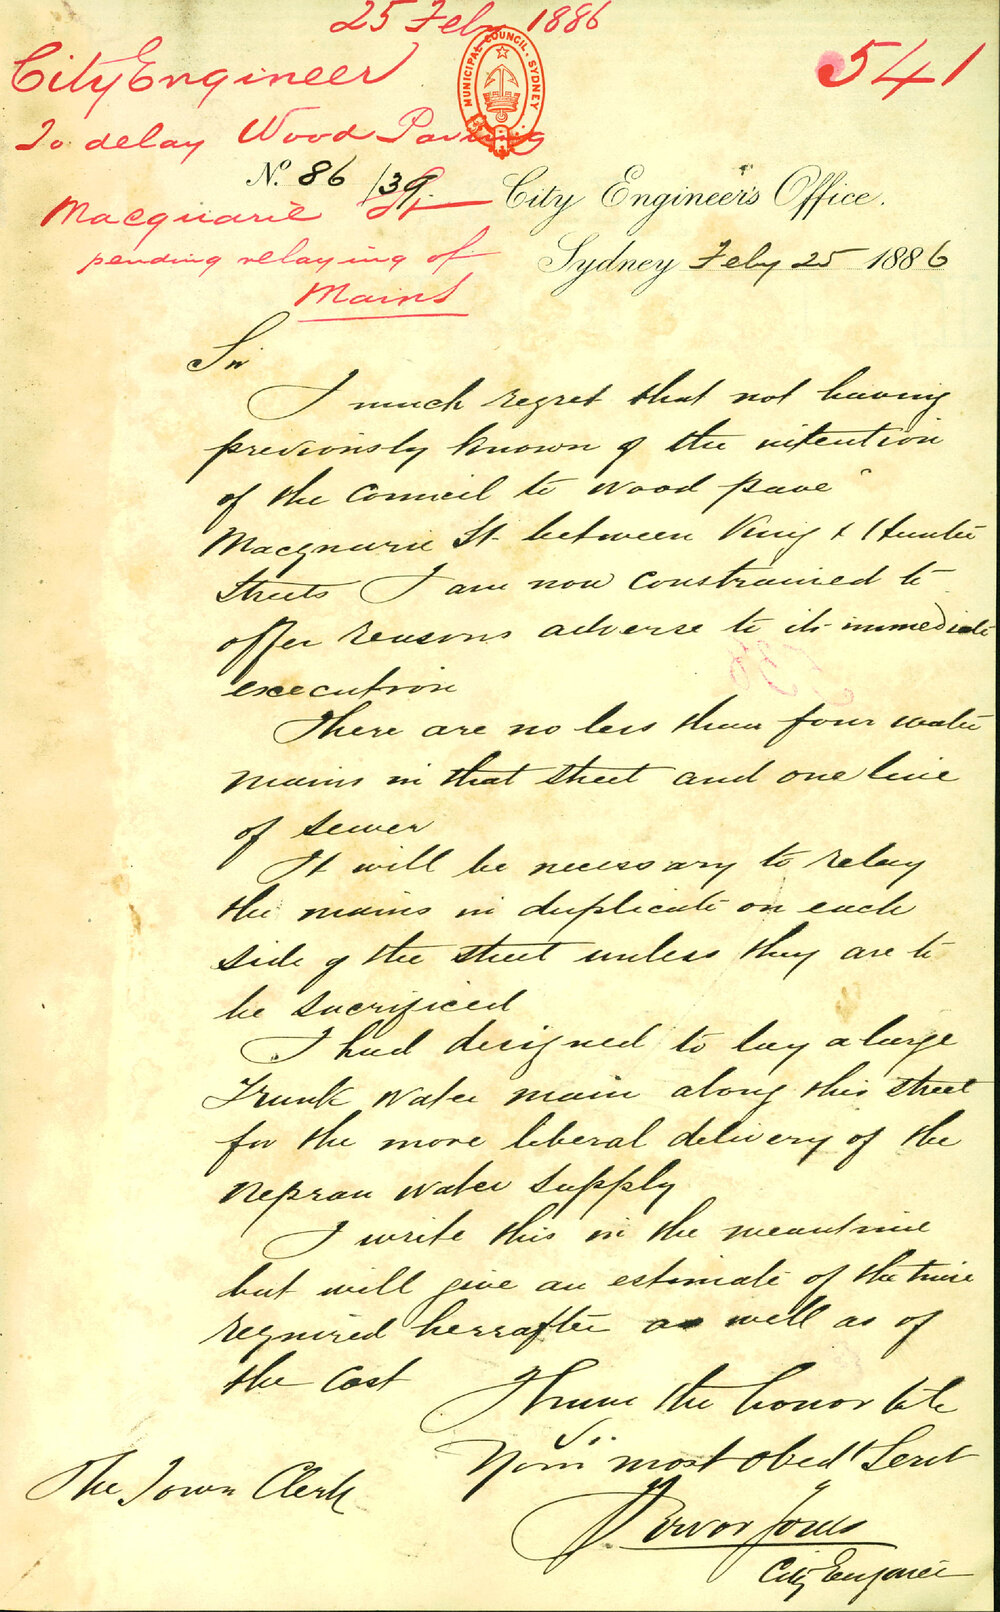 25 Feby 1886
City Engineer
541
MUNICIPAL COUNCIL. SYDNEY
To delay Wood Paving
No. 86/39
City Engineer's Office.
Macquarie St
pending relaying of
Sydney Feby 25 1886
Mains
Sir
I much regret that not having
previously known of the intention
of the Council to "wood pave"
Macquarie St. between King & Hunter
Streets I am now constrained to
offer reasons adverse to its immediate
execution
There are no less than four water
mains in that street and one line
of sewer
It will be necessary to relay
the mains in duplicate on each
side of the street unless they are to
be sacrificed
I had designed to lay a large
Trunk water main along this street
for the more liberal delivery of the
Nepean water supply
I write this in the meantime
but will give an estimate of the time
required hereafter as well as of
the cost
I have the honor to be
Sir
Your most obedt Servt
The Town Clerk
Trevor Jones
City Engineer